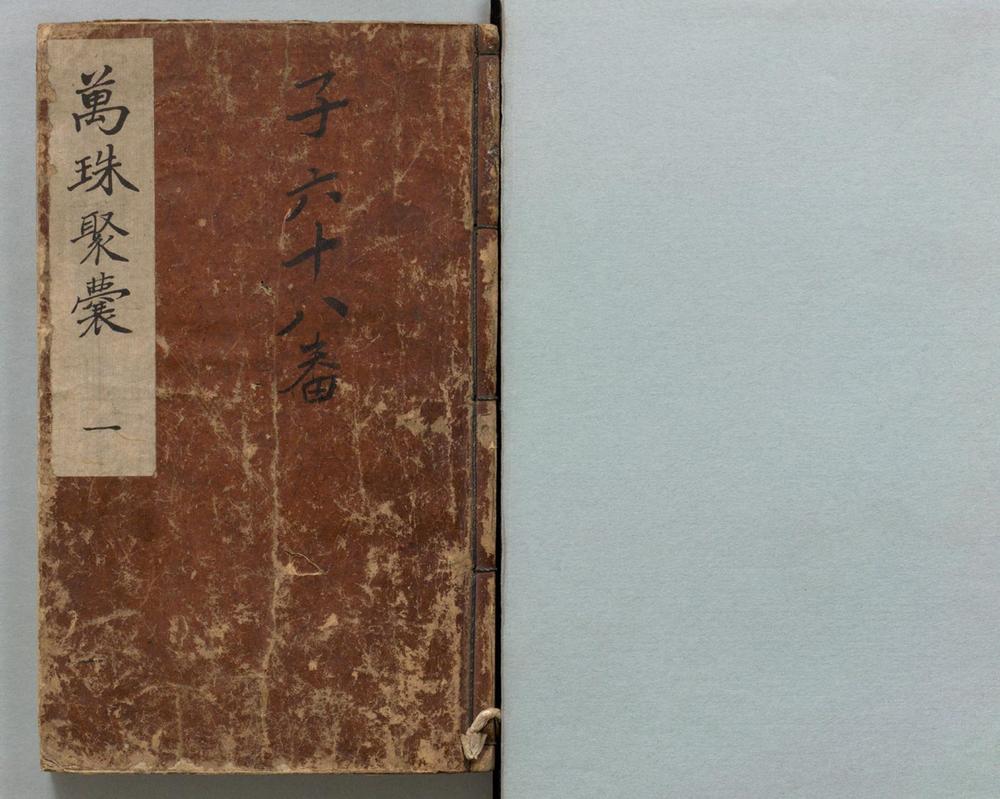 子六十八番
萬珠聚囊
一